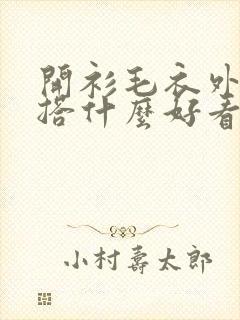 開衫毛衣外
搭什麼好看
小村壽太郎